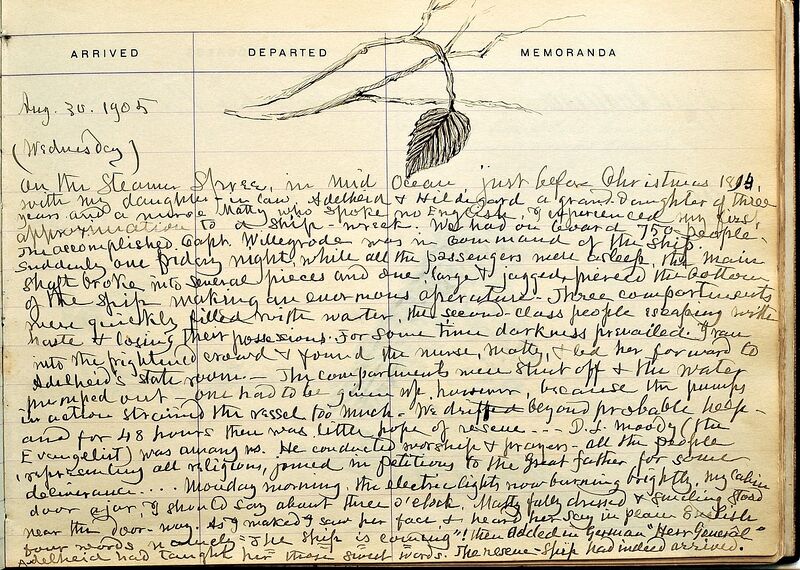 ARRIVED DEPARTED MEMORANDA
Aug. 30. 1905
(Wednesday)
On the Steamer Spree, in mid Ocean, just before Christmas
with my daughter-in-law Adelheid & Hildegard a grand-daughter of three
years and a nurse Matty who spoke no English, I experienced my first
approximation to a ship-wreck. We had on board 750 people.
The accomplished Capt. Willegrode was in command of the ship.
Suddenly one friday night while all the passengers were asleep, the main
shaft broke into several pieces and one large & jagged, pierced the bottom
of the ship making an enormous aperature - Three compartments
were quickly filled with water, the second-class people escaping with
haste & losing their possessions. For some time darkness prevailed. I ran
into the frightened crowd & found the nurse, Matty, & led her forward to
Adelheid's state room. - The compartments were shut off & the water
pumped out - one had to be given up, however, because the pumps
in action strained the vessel too much. We drifted beyond probable help -
and for 48 hours there was little hope of rescue - - - D. L. Moody (the
Evangelist) was among us. He conducted worship & prayers - all the people
representing all religions, joined in petitions to the Great Father for some
deliverance.... Monday morning, the electric lights now burning brightly, my cabin
door ajar, I should say about three o'clock, Matty fully dressed & smiling stood
near the door-way. As I waked I saw her face & heard her say in plain English
four words namely "The ship is coming"! then added in German "Herr General"
Adelheid had taught her these sweet words. The rescue-ship had indeed arrived.